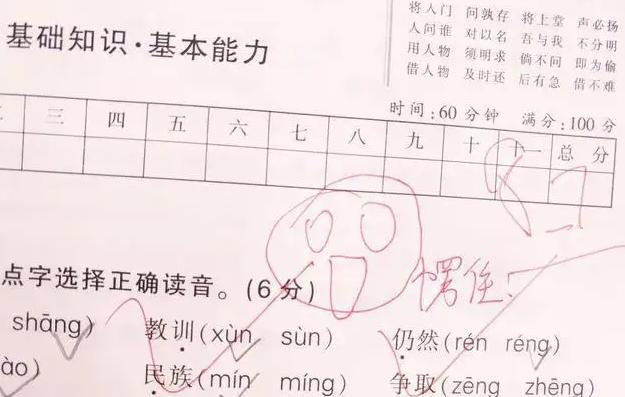 将人门 问孰存 将上堂 声必扬
人问谁 对以名 吾与我 不分明
用人物 须明求 倘不问 即为偷
借人物 及时还 后有急 借不难
基础知识·基本能力
时间:60分钟 满分:100分
三 四 五 六 七 八 九 十 十一 总分
87
愣住
点字选择正确读音。(6分)
shāng) 教训(xùn sùn) 仍然(rén réng)
ào) 民族(mín míng) 争取(zēng zhēng)